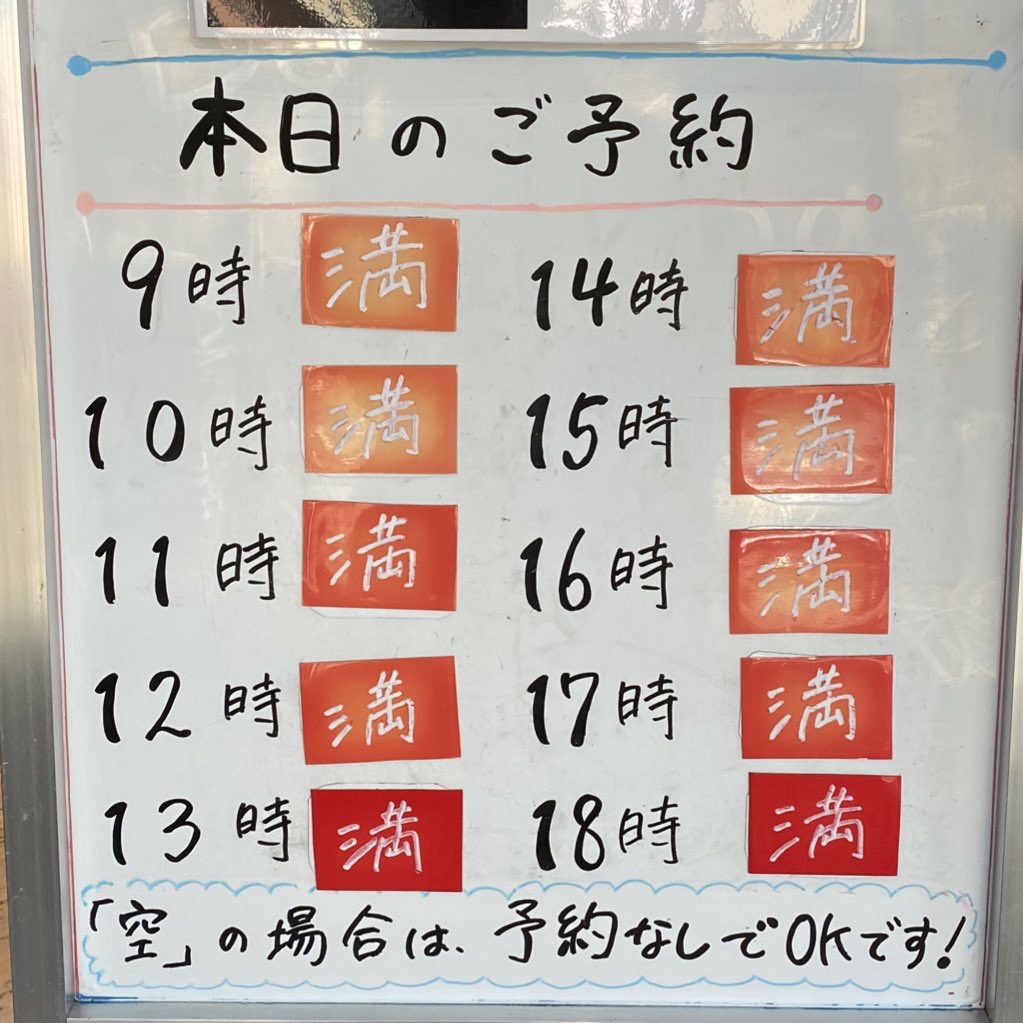 本日のご予約
9時 満
14時 満
10時 満
15時 満
11時 満
16時 満
12時 満
17時 満
13時 満
18時 満
「空」の場合は、予約なしでOKです!